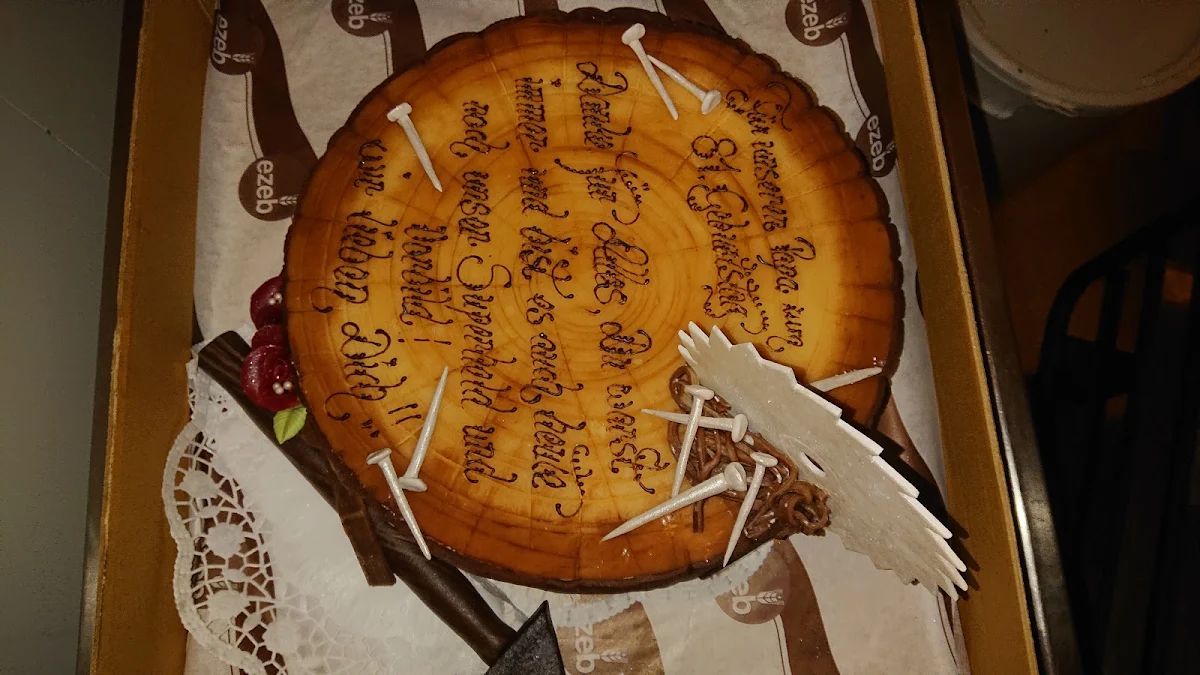 Für unseren Papa zum
81. Geburtstag
Danke für Alles, du warst
immer und bist es auch heute
noch, unser Superheld und
Vorbild!
wir lieben Dich!!
ezeb
ezeb
ezeb
ezeb
ezeb
ezeb
ezeb